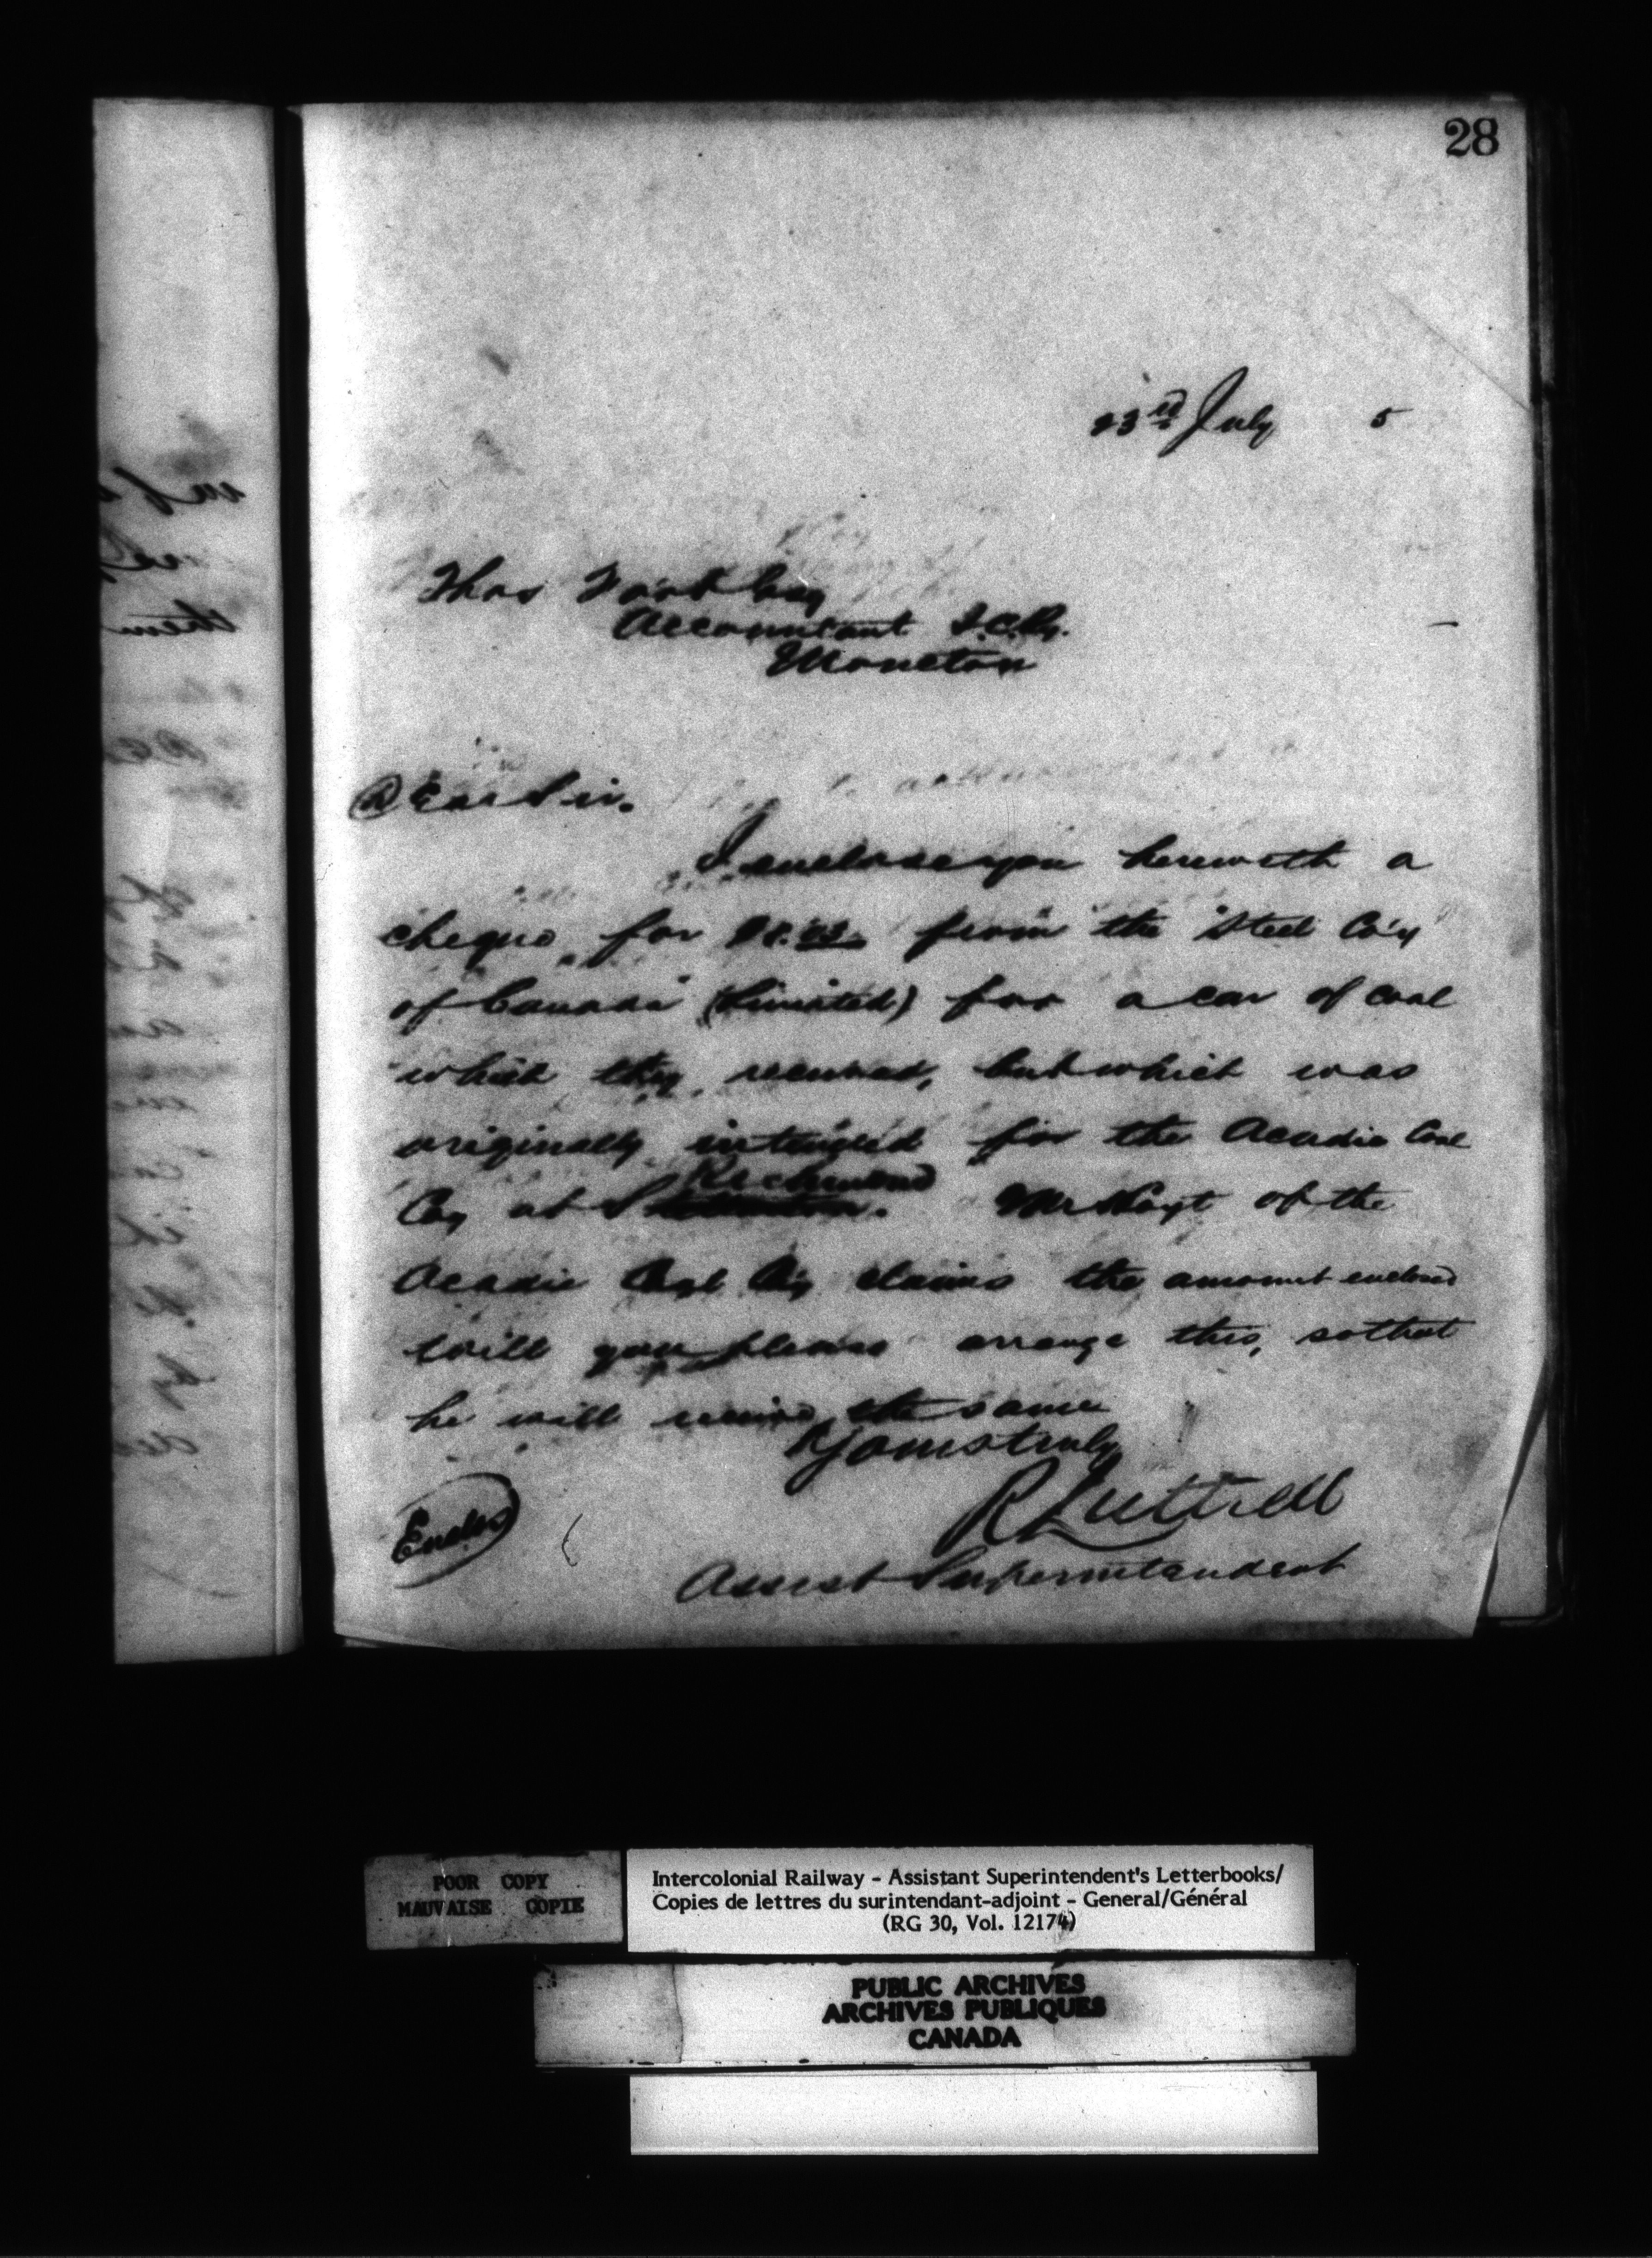 28
23rd July 5
Thos Foot Esq
Accountant I.C.Ry.
Moncton
Dear Sir.
I enclose you herewith a
cheque for from the Steel Co'y
of Canada (Limited) for a car of coal
which they received, but which was
originally intended for the Acadia Coal
Richmond
Coy at Mr Hoyt of the
Acadia Coal Co'y claims the amount enclosed
Will you please arrange this, so that
he will receive the same
Yours truly
R Luttrell
Assist Superintendent
Enclos
POOR COPY
MAUVAISE COPIE
Intercolonial Railway - Assistant Superintendent's Letterbooks/
Copies de lettres du surintendant-adjoint - General/Général
(RG 30, Vol. 12174)
PUBLIC ARCHIVES
ARCHIVES PUBLIQUES
CANADA